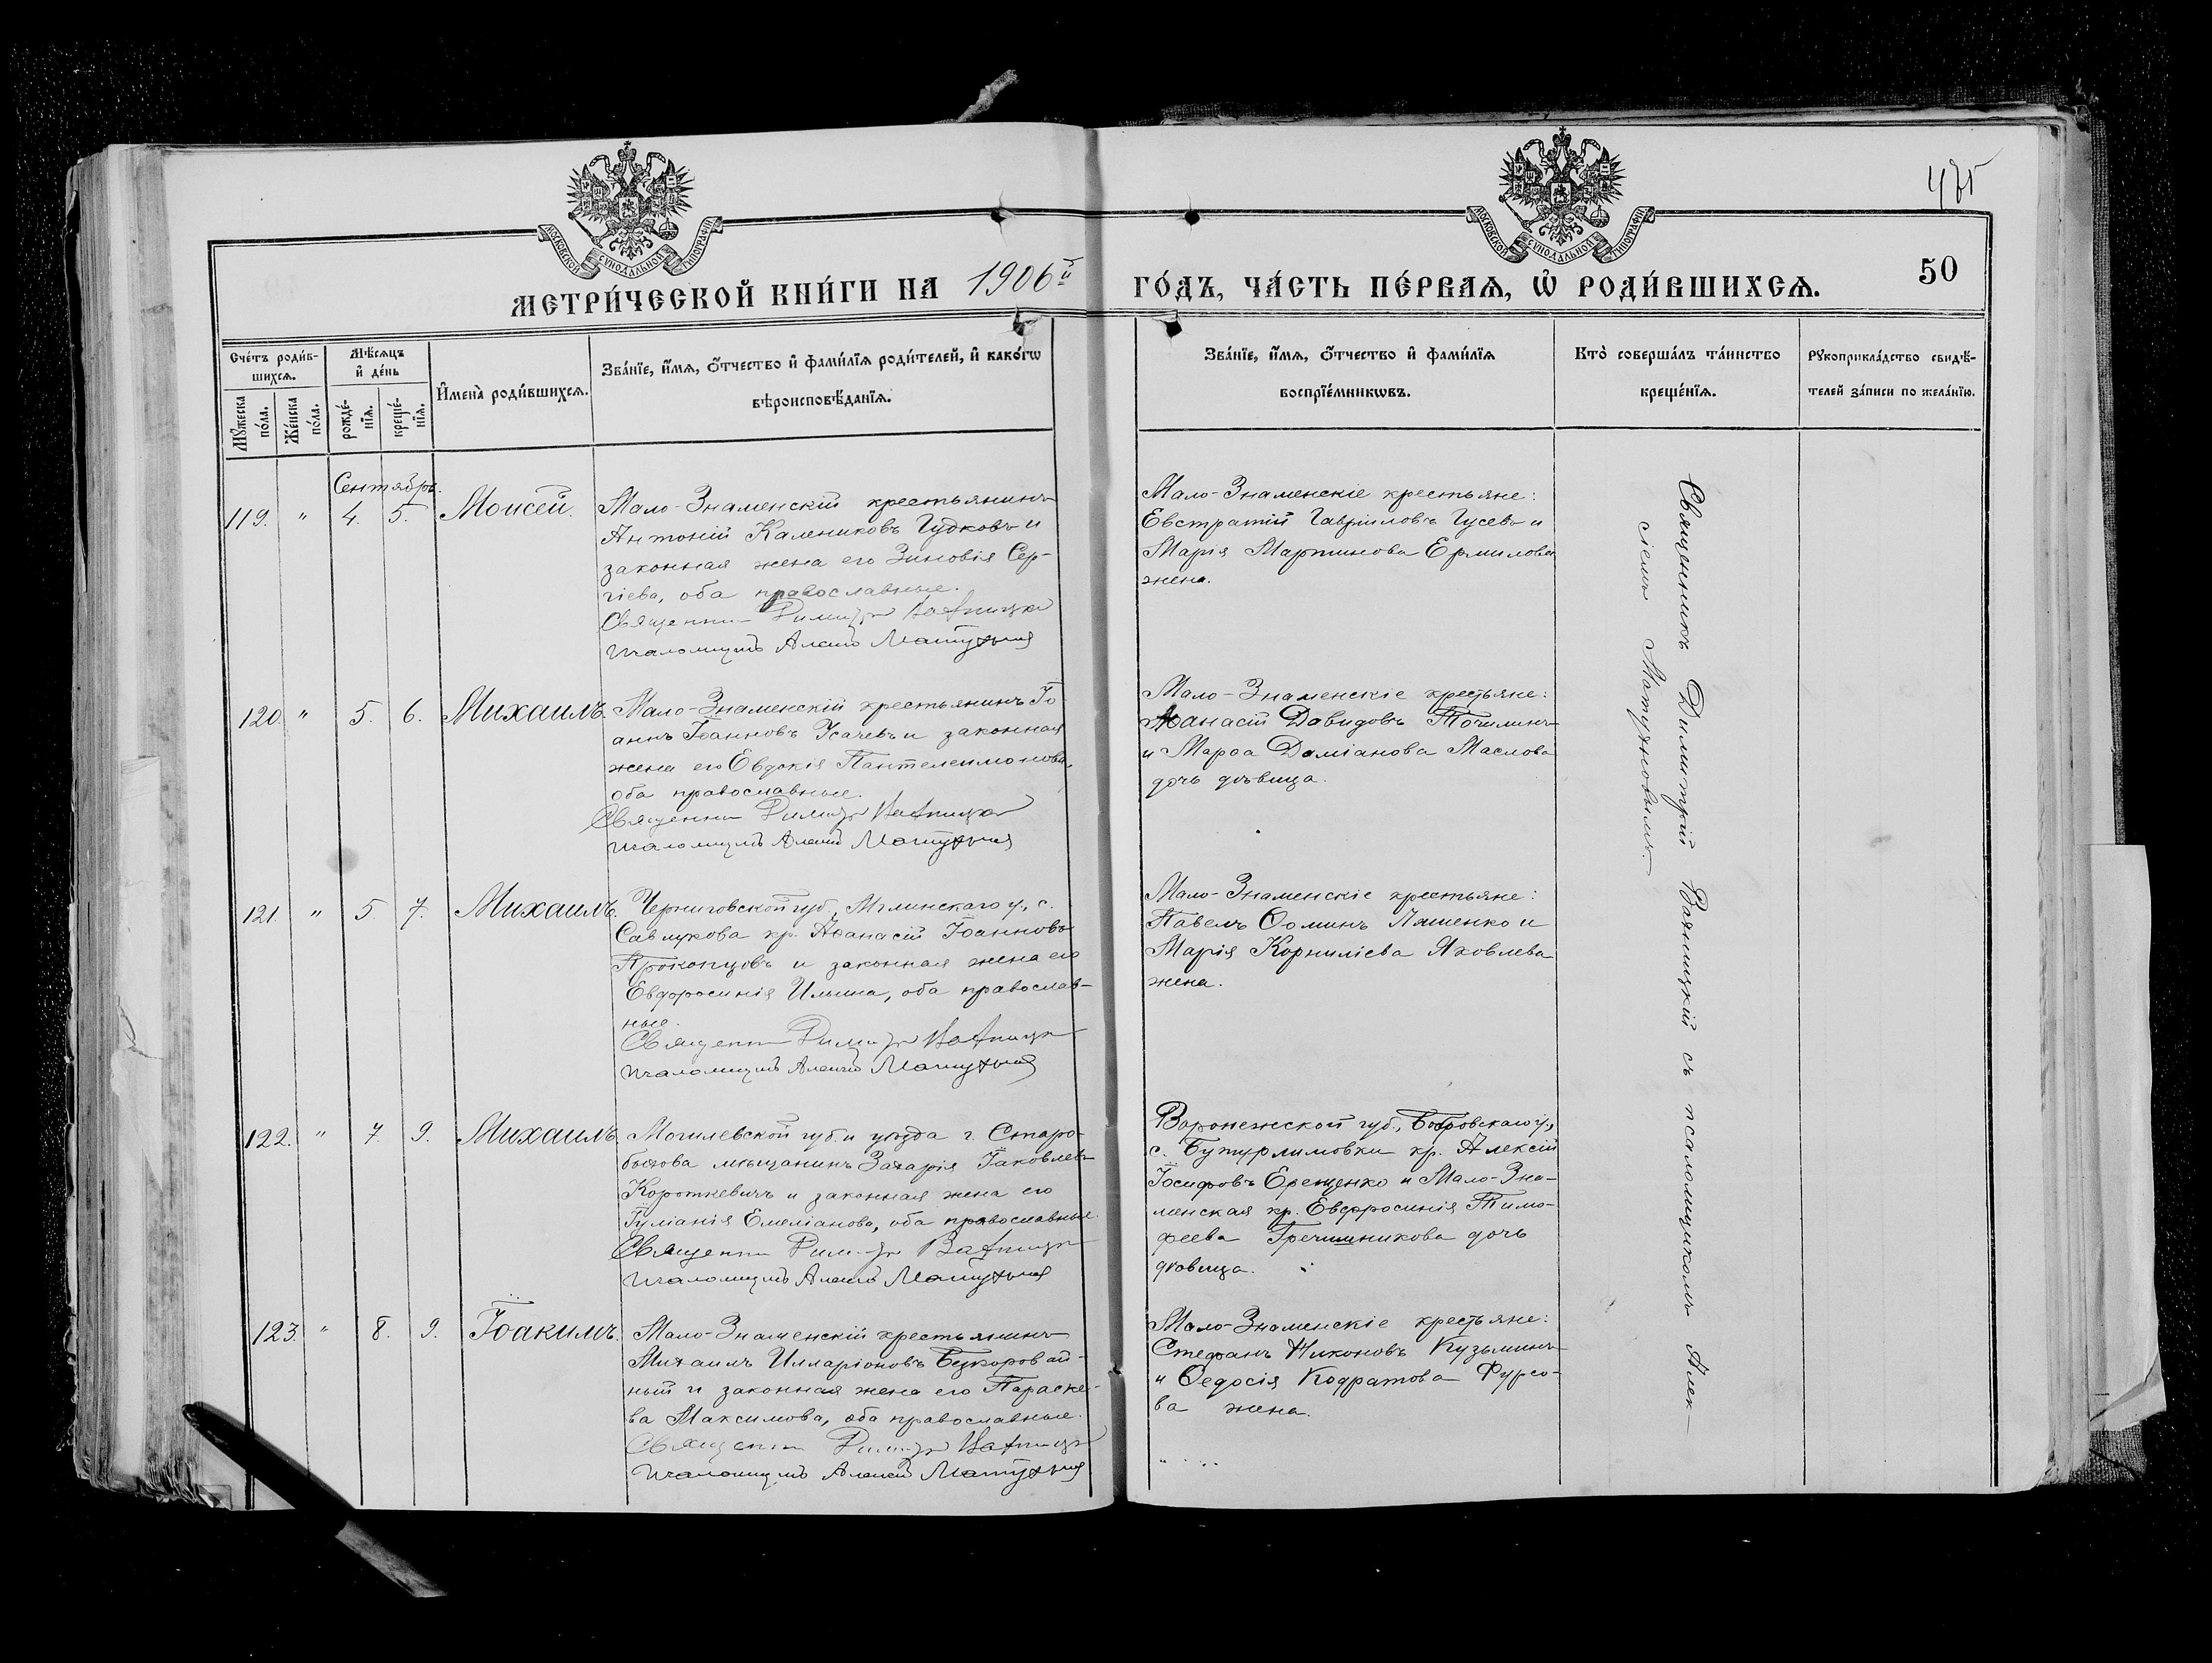 475
МОСКОВСКОЙ СѴНОДАЛЬНОЙ ТИПОГРАФІИ
МОСКОВСКОЙ СѴНОДАЛЬНОЙ ТИПОГРАФІИ
МЕТРИ́ЧЕСКОЙ КНИ́ГИ НА 1906й ГО́ДЪ, ЧА́СТЬ ПЕ́РВАѦ, Ѡ҆ РОДИ́ВШИХСѦ.
50
Сче́тъ роди́в-
шихсѧ.
Мꙋ́жеска по́ла.
Же́нска по́ла.
Мѣ́сѧцъ и҆ де́нь
рожде́-
нїѧ.
креще́-
нїѧ.
И҆мена̀ роди́вшихсѧ.
Зва́нїе, и҆́мѧ, ѻ҆́тчество и҆ фамилїѧ роди́телей, и҆ како́гѡ
вѣроисповѣ́данїѧ.
Зва́нїе, и҆́мѧ, ѻ҆́тчество и҆ фами́лїѧ
воспрїе́мникѡвъ.
Кто̀ соверша́лъ та́инство
креще́нїѧ.
Рꙋкоприкла́дство свидѣ́-
телей за́писи по жела́нїю.
Сентябрь.
119. " 4. 5. Моисей.
Мало-Знаменскій крестьянинъ
Антоній Калениковъ Гудковъ и
законная жена его Зиновія Сер-
гіева, оба православные.
Священникъ Димитрій Ваяницкій
Псаломщикъ Алексій Матужновъ
Мало-Знаменскіе крестьяне:
Евстратій Гавріиловъ Гусевъ и
Марія Мартинова Ермилова
жена.
120. " 5. 6. Михаилъ.
Мало-Знаменскій крестьянинъ Іо-
аннъ Іоанновъ Усачевъ и законная
жена его Евдокія Пантелеимонова,
оба православные.
Священникъ Димитрій Ваяницкій
Псаломщикъ Алексій Матужновъ
Мало-Знаменскіе крестьяне:
Аѳанасій Давидовъ Точилинъ
и Марѳа Даміанова Маслова
дочь дѣвица.
121. " 5. 7. Михаилъ.
Черниговской губ., Мглинскаго у., с.
Савлукова кр. Аѳанасій Іоанновъ
Прокопцовъ и законная жена его
Евфросинія Ильина, оба православ-
ные.
Священникъ Димитрій Ваяницкій
Псаломщикъ Алексій Матужновъ
Мало-Знаменскіе крестьяне:
Павелъ Ѳоминъ Ляшенко и
Марія Корниліева Яковлева
жена.
122. " 7. 9. Михаилъ.
Могилевской губ. и уѣзда г. Старо-
быхова мѣщанинъ Захарія Іаковлевъ
Короткевичъ и законная жена его
Іуліанія Емеліанова, оба православные.
Священникъ Димитрій Ваяницкій
Псаломщикъ Алексій Матужновъ
Воронежской губ., Бобровскаго у.,
с. Бутурлиновки кр. Алексій
Іосифовъ Ерещенко и Мало-Зна-
менская кр. Евфросинія Тимо-
феева Гречишникова дочь
дѣвица.
123. " 8. 9. Іоакимъ.
Мало-Знаменскій крестьянинъ
Михаилъ Илларіоновъ Безкоровай-
ный и законная жена его Параске-
ва Максимова, оба православные.
Священникъ Димитрій Ваяницкій
Псаломщикъ Алексій Матужновъ
Мало-Знаменскіе крестьяне:
Стефанъ Никоновъ Кузьминъ
и Ѳедосія Кодратова Фурсо-
ва жена.
Священникъ Димитрій Ваяницкій съ псаломщикомъ Алек-
сіемъ Матужновымъ.